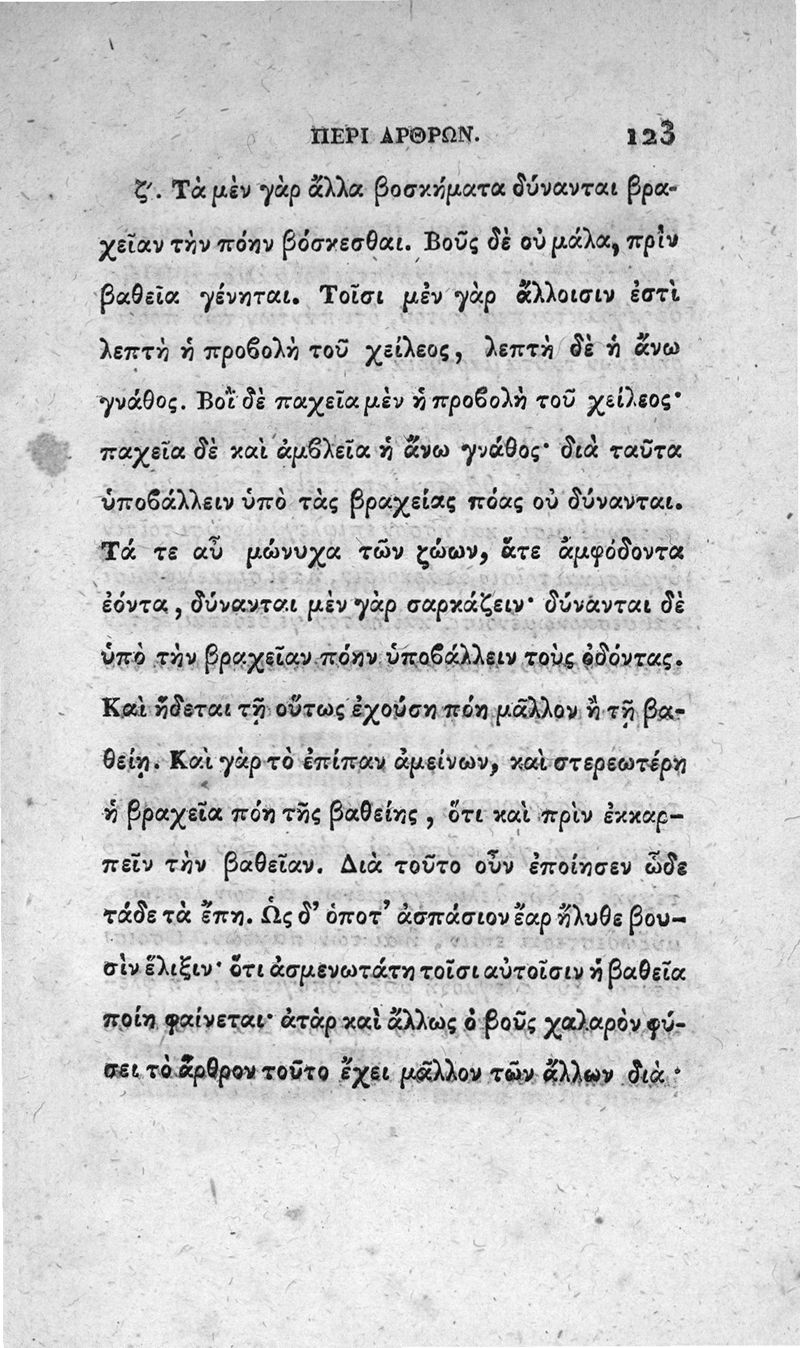 ΠΕΡΙ ΑΡΘΡΩΝ. 123
ζ´. Τὰ μὲν γὰρ ἄλλα βοσκήματα δύνανται βρα-
χεῖαν τὴν πόην βόσκεσθαι. Βοῦς δὲ οὐ μάλα, πρὶν
βαθεῖα γένηται. Τοῖσι μὲν γὰρ ἄλλοισιν ἐστὶ
λεπτὴ ἡ προϐολὴ τοῦ χείλεος, λεπτὴ δὲ ἡ ἄνω
γνάθος. Βοῒ δὲ παχεῖα μὲν ἡ προϐολὴ τοῦ χείλεος·
παχεῖα δὲ καὶ ἀμϐλεῖα ἡ ἄνω γνάθος· διὰ ταῦτα
ὑποϐάλλειν ὑπὸ τὰς βραχείας πόας οὐ δύνανται.
Τά τε αὖ μώνυχα τῶν ζώων, ἅτε ἀμφόδοντα
ἐόντα, δύνανται μὲν γὰρ σαρκάζειν· δύνανται δὲ
ὑπὸ τὴν βραχεῖαν πόην ὑποϐάλλειν τοὺς ὀδόντας.
Καὶ ἥδεται τῇ οὕτως ἐχούσῃ πόῃ μᾶλλον ἢ τῇ βα-
θείῃ. Καὶ γὰρ τὸ ἐπίπαν ἀμείνων, καὶ στερεωτέρη
ἡ βραχεῖα πόη τῆς βαθείης, ὅτι καὶ πρὶν ἐκκαρ-
πεῖν τὴν βαθεῖαν. Διὰ τοῦτο οὖν ἐποίησεν ὧδε
τάδε τὰ ἔπη. Ὡς δ’ ὁποτ’ ἀσπάσιον ἔαρ ἤλυθε βου-
σὶν ἕλιξιν· ὅτι ἀσμενωτάτη τοῖσι αὐτοῖσιν ἡ βαθεῖα
ποίη φαίνεται· ἀτὰρ καὶ ἄλλως ὁ βοῦς χαλαρὸν φύ-
σει τὸ ἄρθρον τοῦτο ἔχει μᾶλλον τῶν ἄλλων διὰ